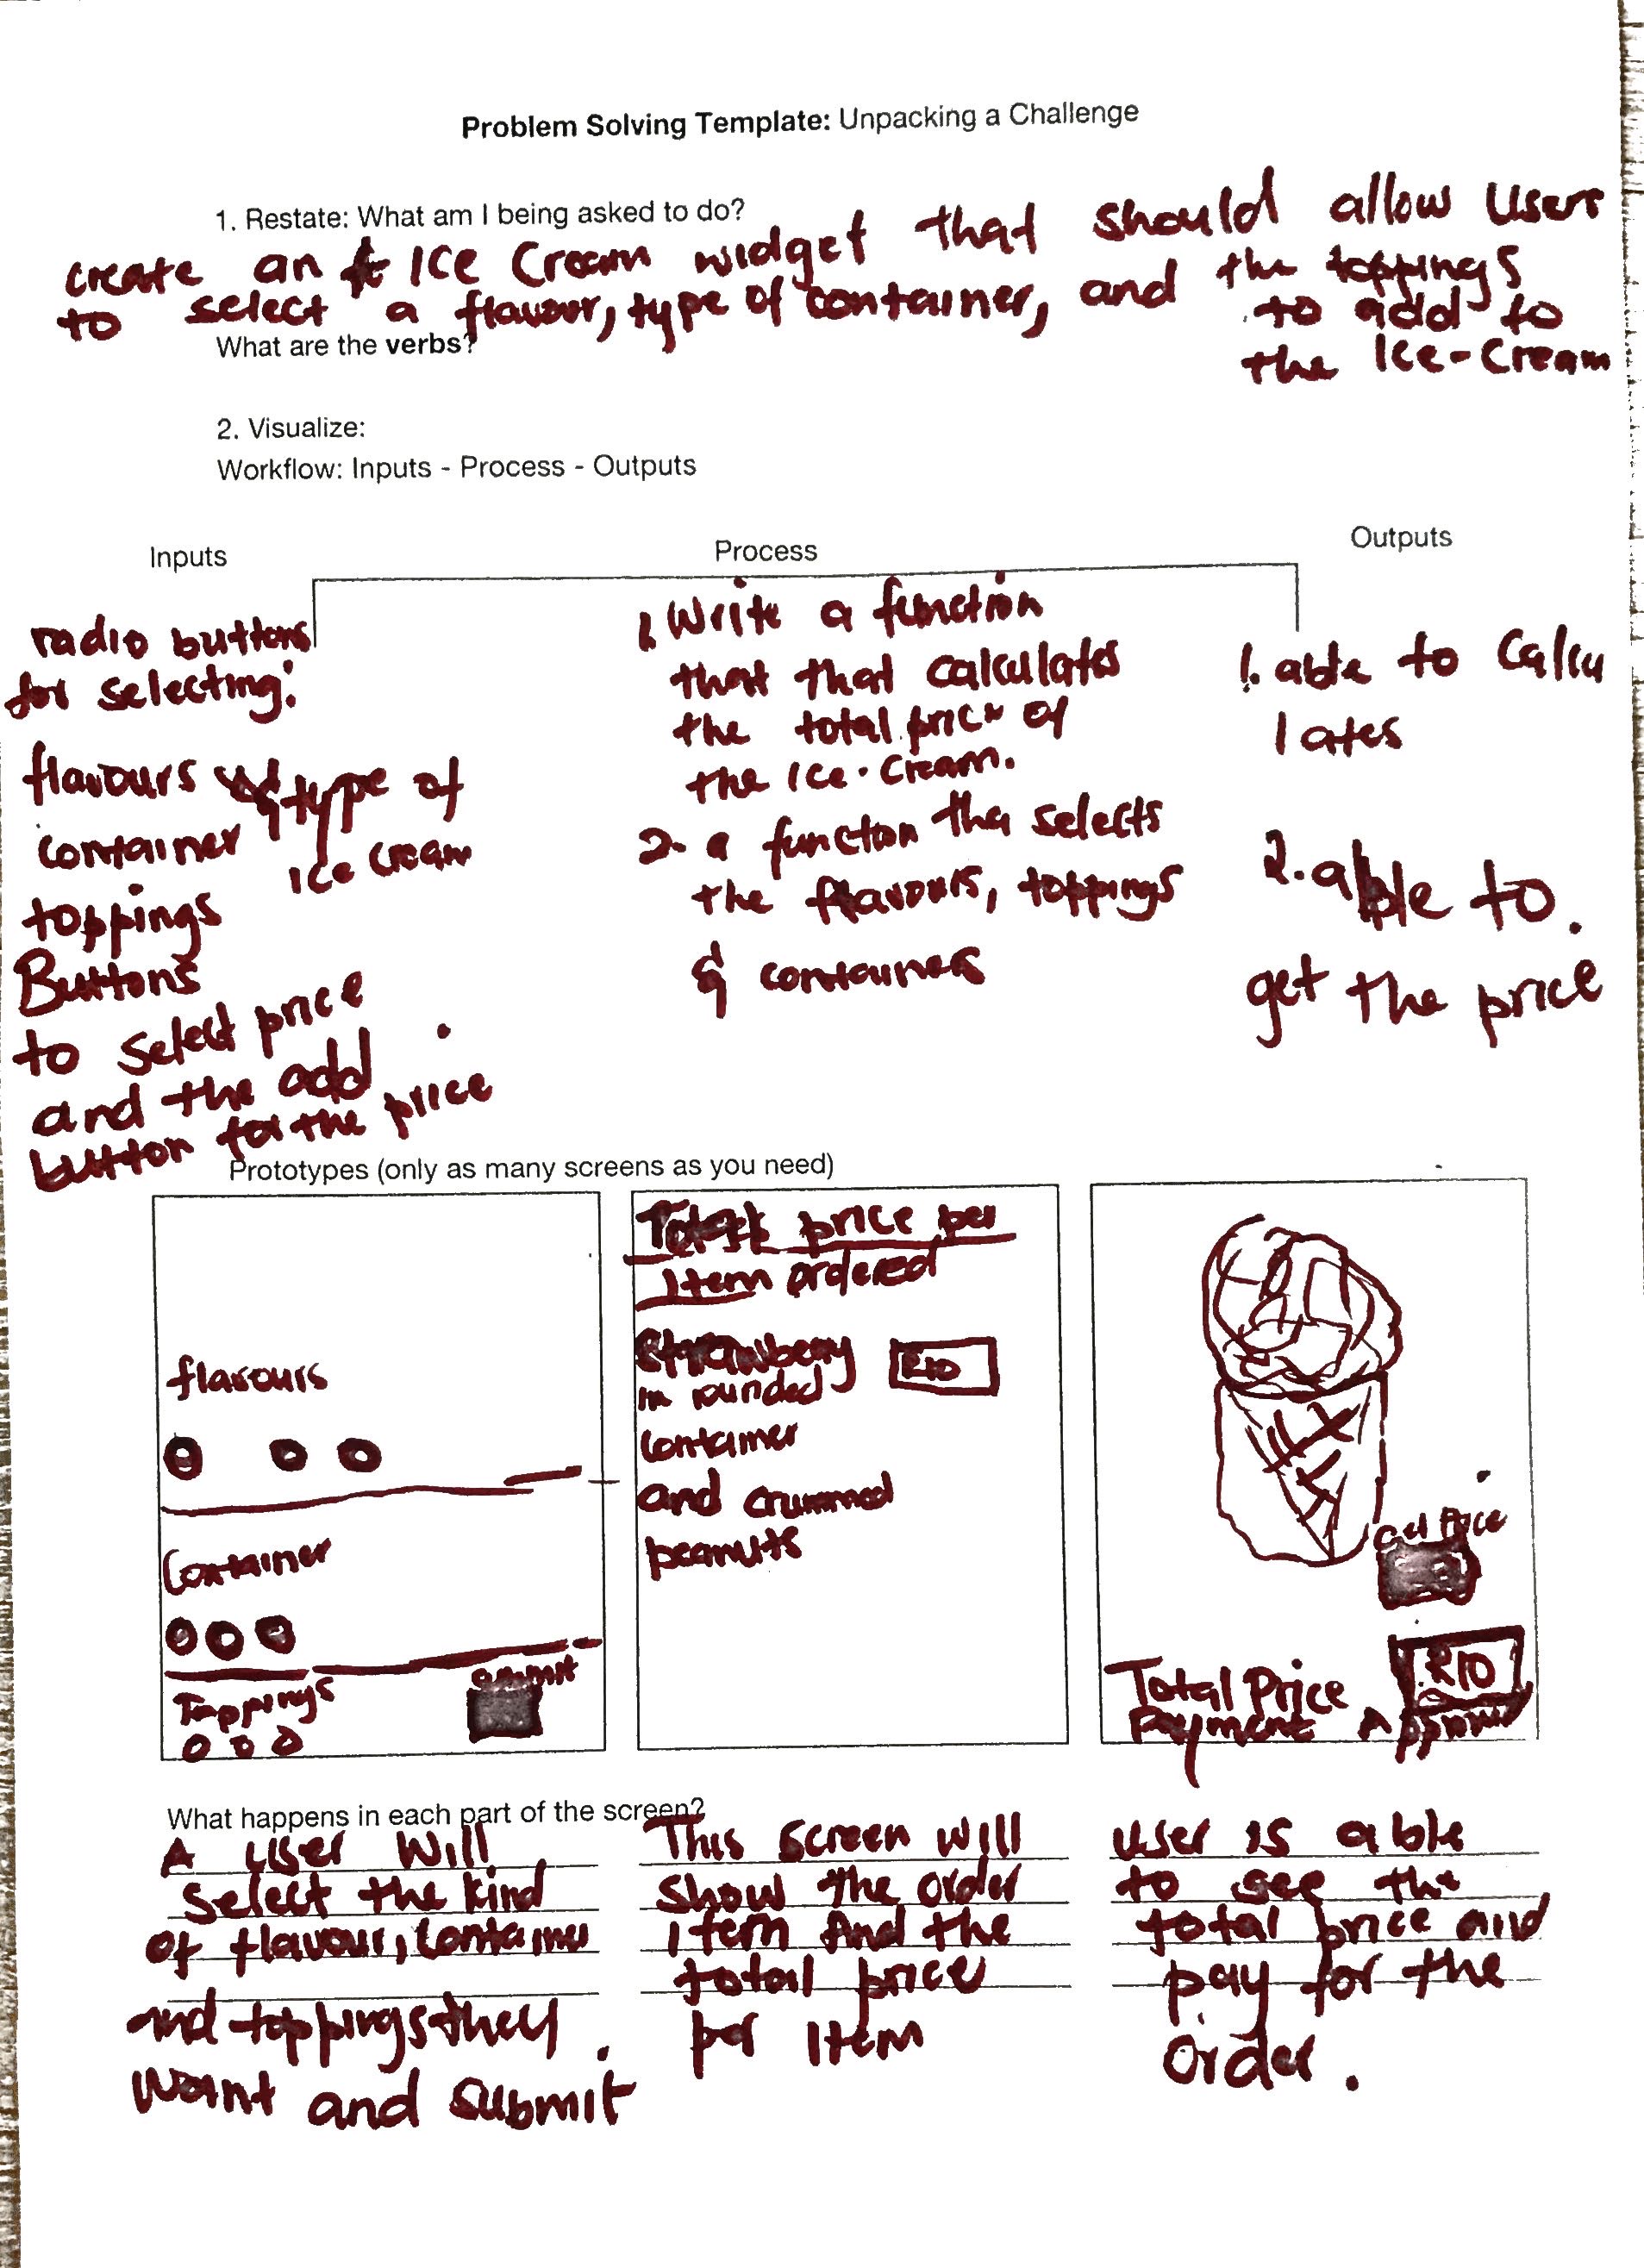 Problem Solving Template: Unpacking a Challenge
1. Restate: What am I being asked to do?
create an Ice Cream widget that should allow users
to select a flavour, type of container, and the toppings
to add to
the Ice-Cream
What are the verbs?
2. Visualize:
Workflow: Inputs - Process - Outputs
Inputs
Process
Outputs
radio buttons
for selecting:
flavours & type of
container
ice cream
toppings
Buttons
to select price
and the add
button for the price
1. Write a function
that that calculates
the total price of
the Ice-Cream.
2. a function tha selects
the flavours, toppings
& containers
1. able to Calcu
lates
2. able to.
get the price
Prototypes (only as many screens as you need)
flavours
Container
Toppings
submit
Total price per
Item ordered
Strawberry
in rounded
R10
container
and crummed
peanuts
Get Price
Total Price
R10
Payment Approved
What happens in each part of the screen?
A user Will
select the kind
of flavour, container
and toppings they
want and submit
This screen will
show the order
Item And the
total price
per Item
user is able
to see the
total price and
pay for the
order.